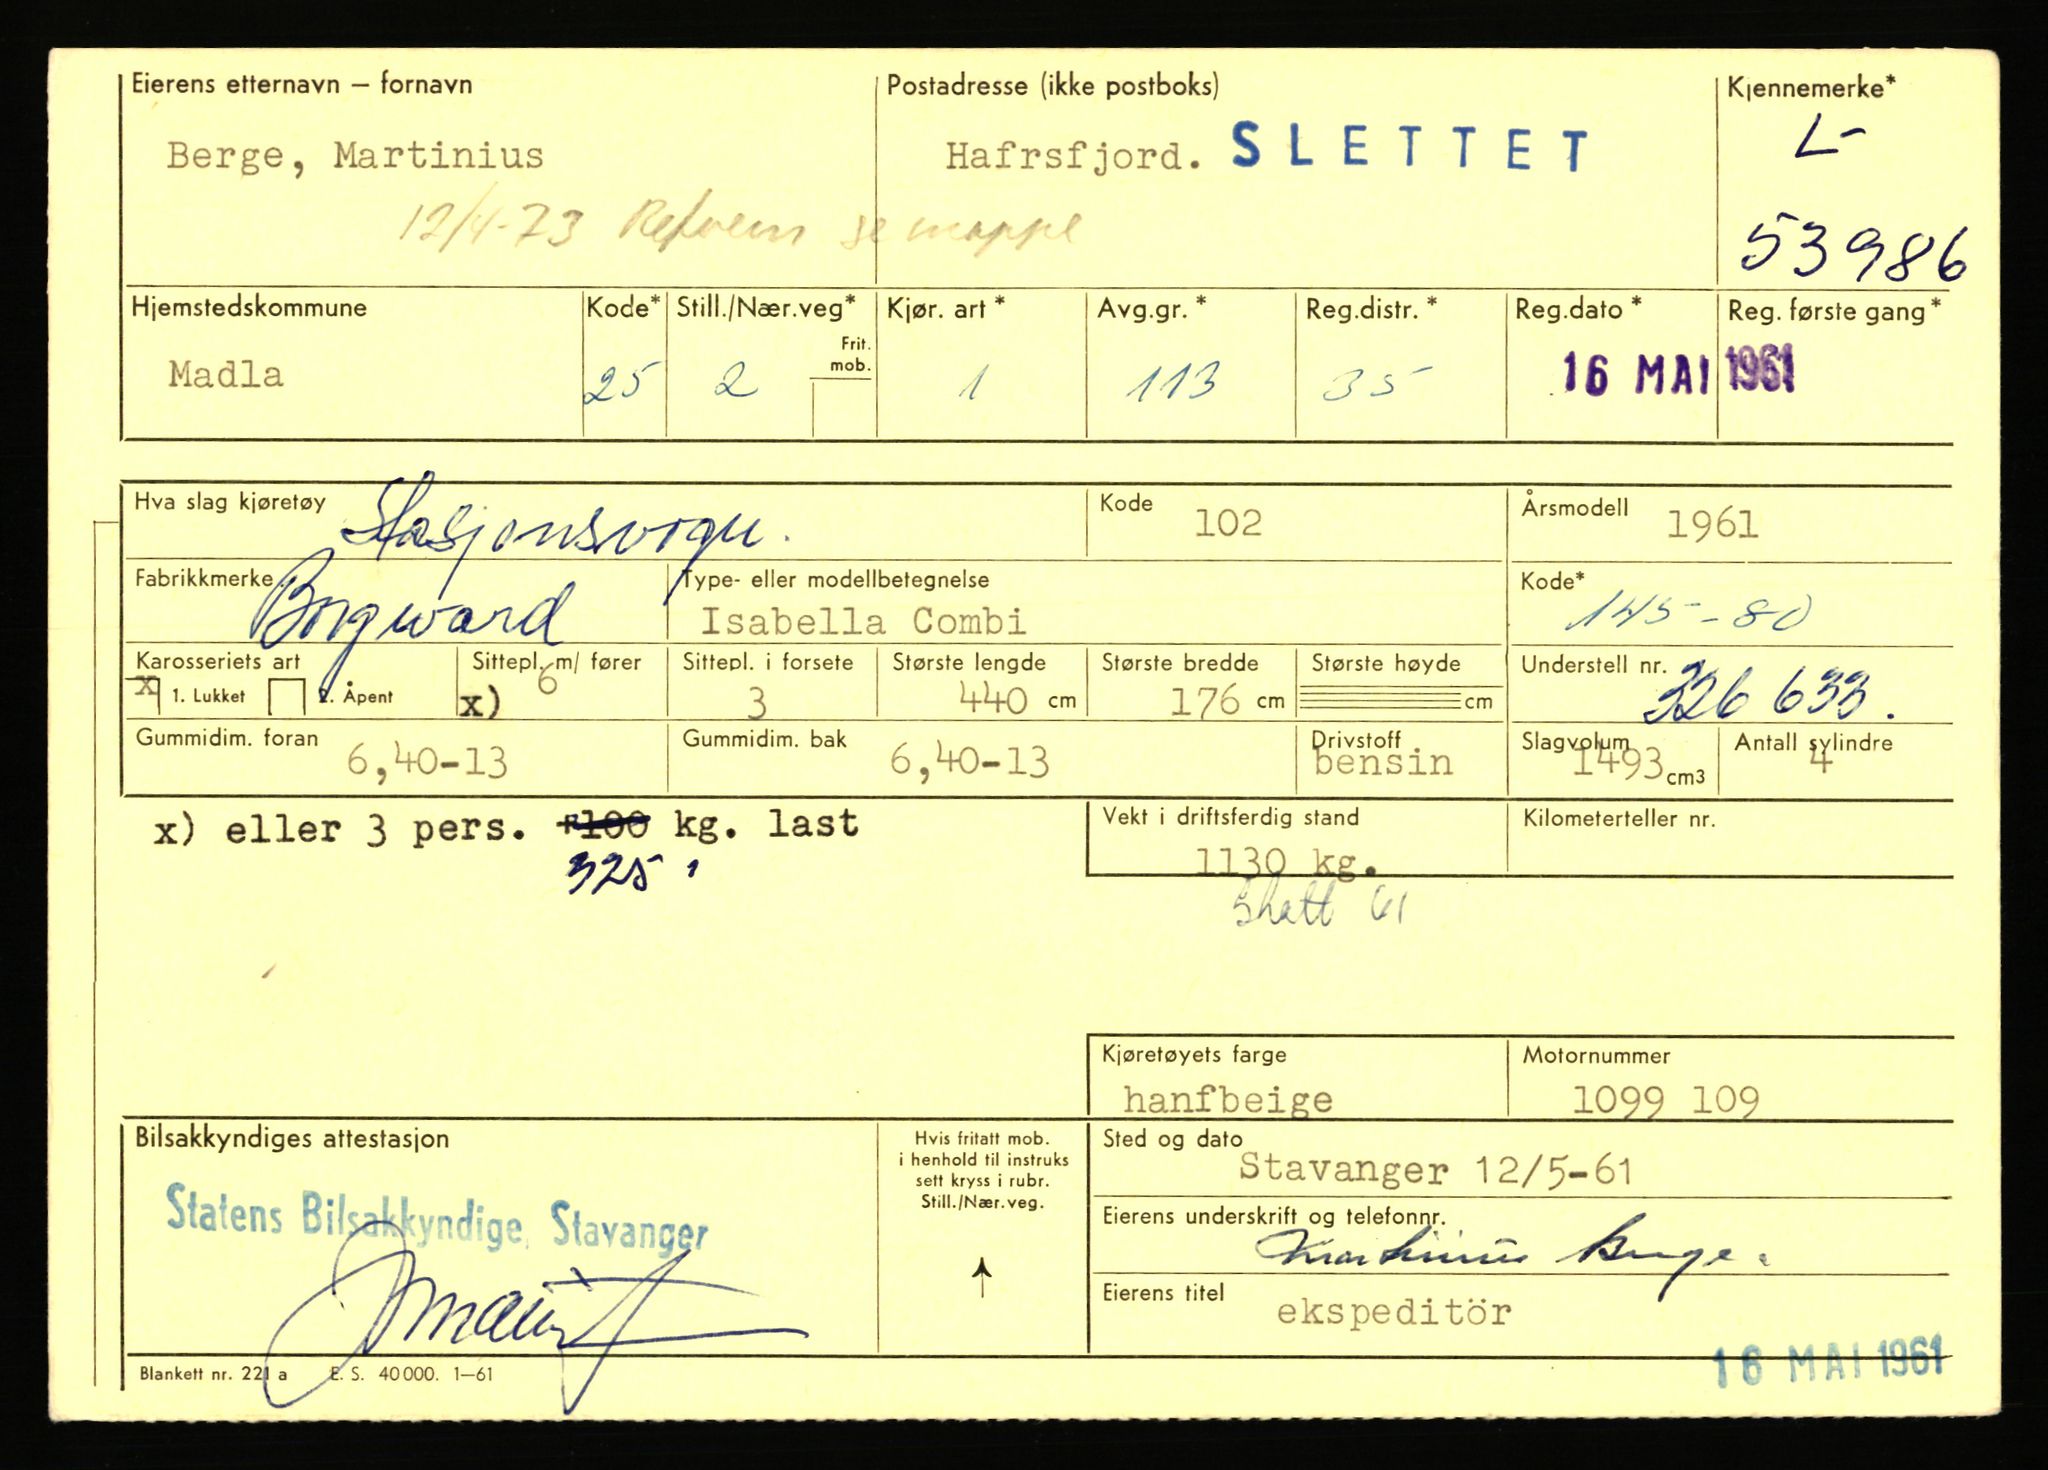 Eierens etternavn – fornavn Postadresse (ikke postboks) Kjennemerke*
Berge, Martinius Hafrsfjord. SLETTET L-
12/4-73 se mappe 53986
Hjemstedskommune Kode* Still./Nær.veg* Kjør. art* Avg.gr.* Reg.distr.* Reg.dato* Reg. første gang*
Frit. mob.
Madla 25 2 1 113 35 16 MAI 1961
Hva slag kjøretøy Stasjonsvogn. Kode 102 Årsmodell 1961
Fabrikkmerke Borgward Type- eller modellbetegnelse Isabella Combi Kode* 145-80
Karosseriets art Sittepl. m/ fører Sittepl. i forsete Største lengde Største bredde Største høyde Understell nr.
x 1. Lukket 2. Åpent x) 6 3 440 cm 176 cm cm 326 633.
Gummidim. foran Gummidim. bak Drivstoff Slagvolum Antall sylindre
6,40-13 6,40-13 bensin 1493 cm3 4
x) eller 3 pers. +100 kg. last Vekt i driftsferdig stand Kilometerteller nr.
325 1130 kg.
Skatt 61
Kjøretøyets farge Motornummer
hanfbeige 1099 109
Bilsakkyndiges attestasjon Hvis fritatt mob. Sted og dato
i henhold til instruks Stavanger 12/5-61
sett kryss i rubr.
Still./Nær.veg.
Statens Bilsakkyndige, Stavanger Eierens underskrift og telefonnr.
Martinius Berge.
Eierens titel ekspeditör
Blankett nr. 221 a E. S. 40000. 1–61 16 MAI 1961